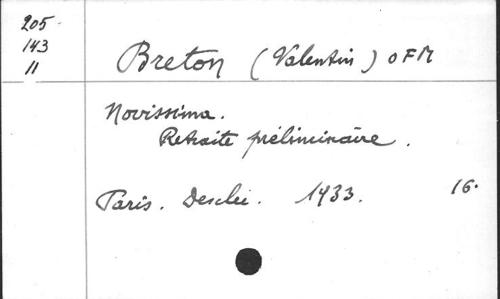 205-
143
11
Breton (Valentin) OFM
Novissima.
Retraite préliminaire.
Paris. Desclée. 1933. 16°